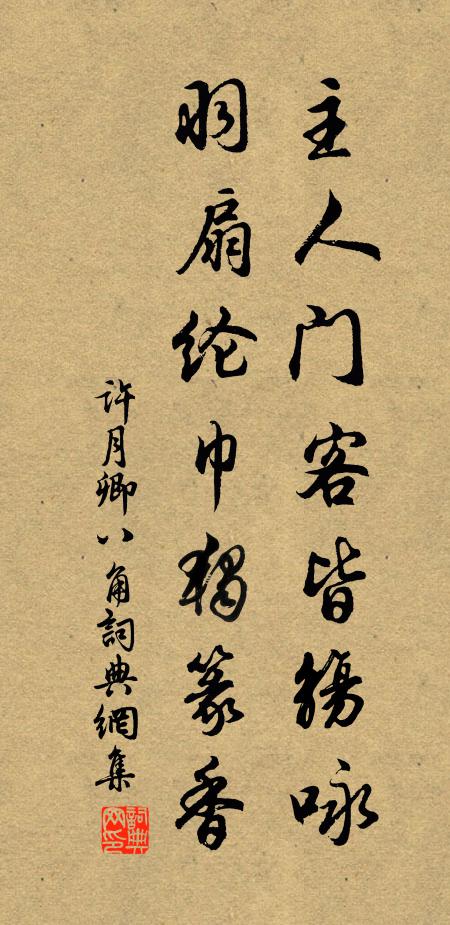 主人门客皆觞咏
羽扇纶巾独篆香
许月卿八角詞典網集
詞典网印